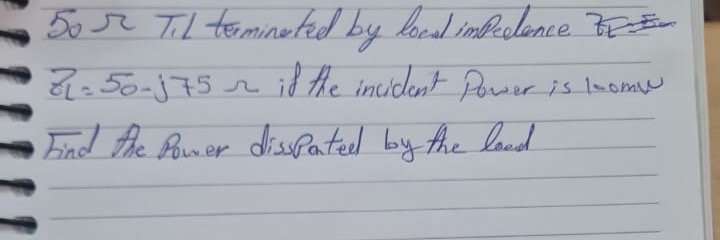 50 Ω T.L terminated by local impedance
ZL = 50 - j75 Ω if the incident Power is 100mW
Find the Power dissPated by the load